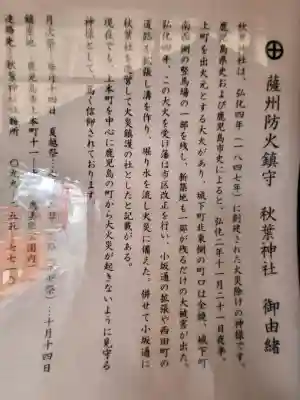 薩州防火鎮守 秋葉神社 御由緒
秋葉神社は、弘化四年(一八四七年)に創建された火災除けの神様です。
鹿児島県史および鹿児島市史によると、弘化二年十一月二十一日夜半、
上町を出火元とする大火があり、城下町北東側の町口は全焼、城下町
南西側の堅馬場の一部を残し、新築地も一部が残るだけの大被害が出た。
弘化四年、この大火を受け藩は市区改正を行い、小坂通の拡張や西田町の
道路も拡張し溝を作り、堀り水を流し火災に備えた。併せて小坂通に
秋葉社を造営して火災鎮護の社としたと記載がある。
現在でも、上本町を中心に鹿児島の町から大火災が起きないように見守る
神様として、篤く信仰されております。
月次祭 毎月十四日 夏越祭 祭)…十月十四日
鎮座地 鹿児島市上本町十一 園内)
連絡先 秋葉神社社務所 〇九九